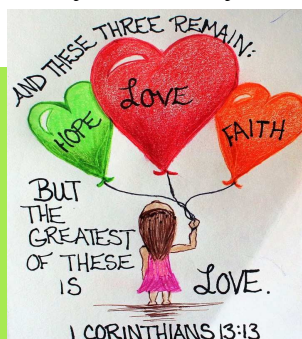 AND THESE THREE REMAIN:
Love
HOPE
FAITH
BUT
THE
GREATEST
OF THESE
IS
LOVE.
1 CORINTHIANS 13:13